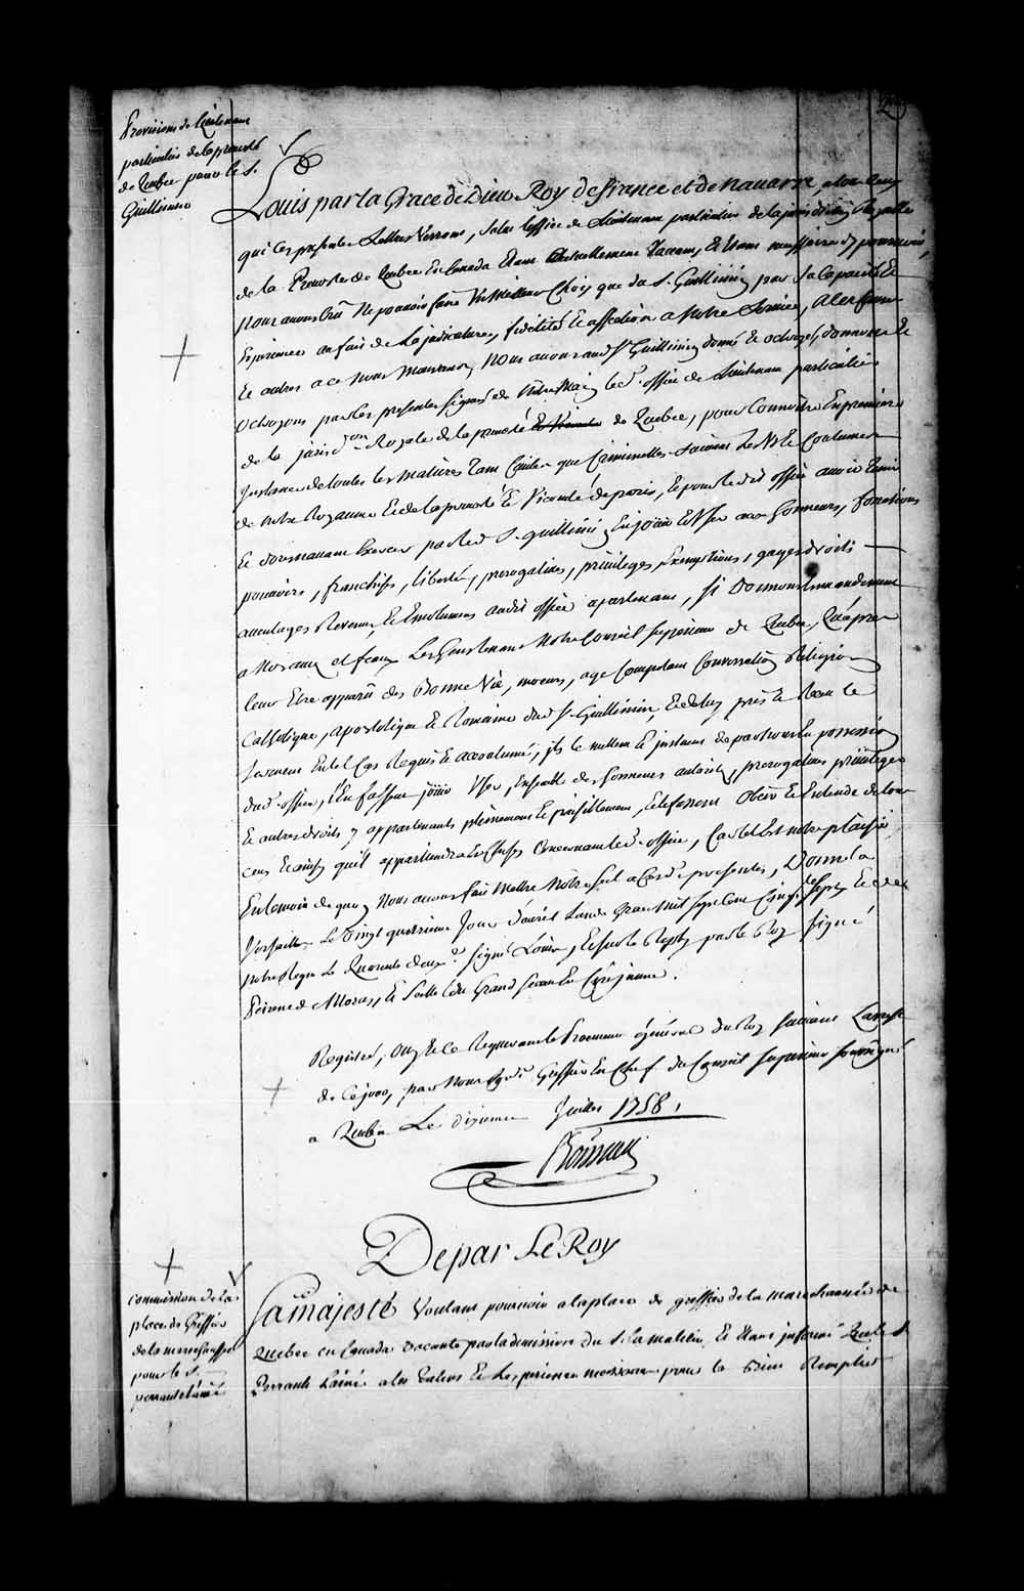 Provisions de Lieutenant
particulier de la prevosté
de Quebec pour le S.
Guillimin
Louis par la Grace de Dieu Roy de france et de navarre, a tous ceux
qui ces presentes Lettres Verront, Salut L'office de Lieutenant particulier de la jurisdiction Royalle
de la Prevosté de Quebec En Canada Etant Actuellement Vacant, Et Etant necessaire d'y pourvoir,
Nous avons Crû Ne pouvoir faire Un Meilleur Choix que du S. Guillimin par Sa Capacité Et
Experience au fait de La judicature, fidelité Et affection a Notre Service, A Ces Causes
Et autres a ce Nous Mouvant, Nous avons aud. S. Guillimin donné Et octroyé, donnons Et
octroyons par Ces presentes signées de Nôtre Main led. office de Lieutenant particulier
de la jurisd.on Royale de la prevosté de Quebec, pour Connoître En premiere
Instance de toutes les Matieres Tant Civiles que Criminelles Suivant Les Us Et Coutumes
de Notre Royaume Et de la prevosté Et Vicomté de paris, Et pour led. office avoir Tenir
Et doresnavant Exercer par led. S. Guillimin En joüir Et User aux honneurs, fonctions
pouvoirs, franchises, libertés, prerogatives, privileges, Exemptions, gages droits
avantages Revenus, Et Emolumens audit office apartenans, Si Donnons En mandement
a Nos amez et feaux Les Gens tenant Notre Conseil Superieur de Quebec, Qu'aprés
leur Etre apparû des Bonne Vie, moeurs, age Competant Conversation Religion
Catholique, apostolique Et Romaine dud. S. Guillimin, Et de luy pris Et Receu le
Serment En tel Cas Requis Et accoutumé, ils le mettent Et instituent de par Nous En possession
dud. office, Et En fassent joüir User, Ensemble des honneurs autorités, prerogatives privileges
Et autres droits y appartenants pleinement Et paisiblement, Et le fassent Obeïr Et Entendre de tous
ceux Et ainsy qu'il appartiendra Es Choses Concernant led. office, Car tel Est notre plaisir,
En temoin de quoy Nous avons fait Mettre Nôtre Scel a Cesd. presentes, Donné a
Versailles Le Vingt quatrieme Jour d'avril L'an de Grace Mil Sept Cent Cinq.te Sept Et de
notre Regne Le Quarante deux.e signé Louis, Et sur le Reply par le Roy signé
Peirenc de Moras, Et Scellé du Grand sceau En Cire jaune.
Registré, Ouy Et Ce Requerant le Procureur Général du Roy Suivant L'arrest
de Ce jour, par Nous Greffier En Chef du Conseil Superieur soussigné
a Quebec Le dixieme Juillet 1758.
Boisseau
De par Le Roy
commission de la
place de Greffier
de la marechaussée
pour le S.
perrault l'ainé
Sa majesté Voulant pourvoir a la place de greffier de la marechaussée de
Quebec en Canada vacante par la demission du S. Lamaletie Et Etant informé que le S.
Perrault L'ainé a les talens Et L'experience necessaires pour la bien Remplir